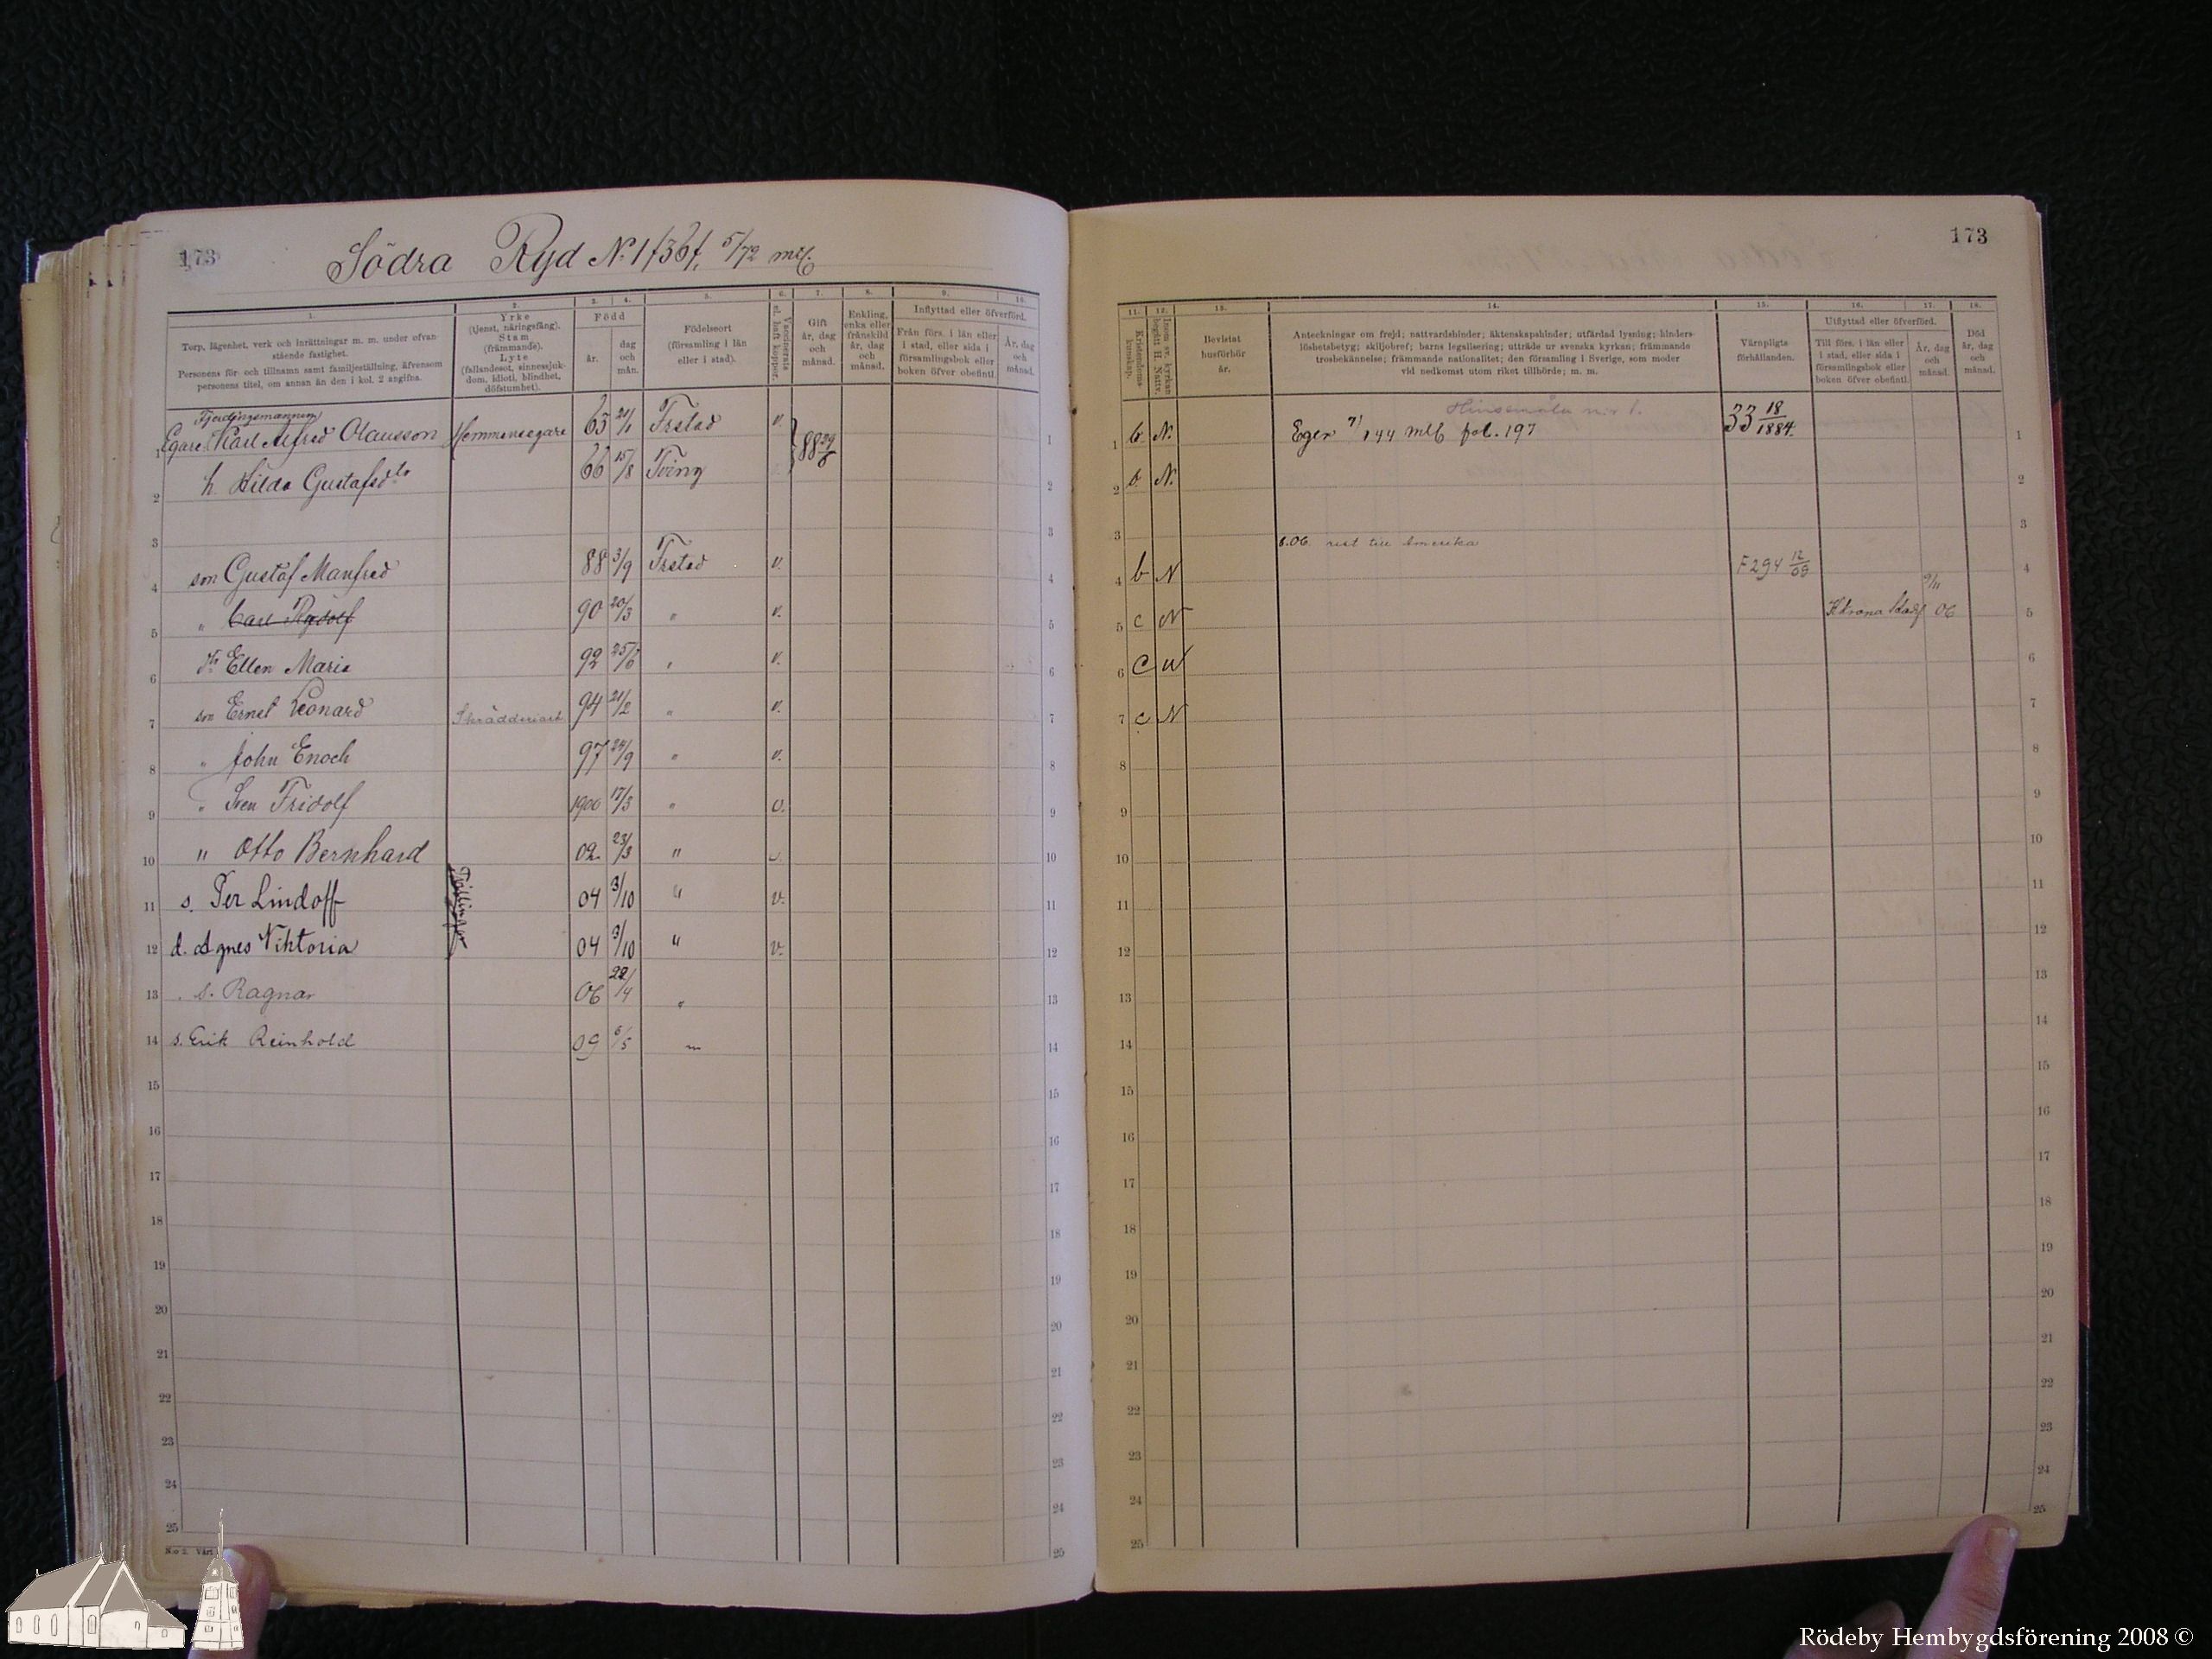 173
Södra Ryd No 1 f36f, 5/72 mtl.
1. 2. 3. 4. 5. 6. 7. 8. 9. 10.
Torp, lägenhet, verk och inrättningar m. m. under ofvanstående fastighet.
Personens för- och tillnamn samt familjeställning, äfvensom personens titel, om annan än den i kol. 2 angifna.
Yrke
(tjenst, näringsfång).
Stam
(främmande).
Lyte
(fallandesot, sinnessjukdom, idioti, blindhet, döfstumhet).
Född
år.
dag och mån.
Födelseort
(församling i län eller i stad).
Vaccinerats el. haft koppor.
Gift år, dag och månad.
Enkling, enka eller frånskild år, dag och månad.
Inflyttad eller öfverförd.
Från förs. i län eller i stad, eller sida i församlingsbok eller boken öfver obefintl.
År, dag och månad.
Fjerdingsmannen
1 Egare Karl Alfred Olausson Hemmansegare 63 20/1 Frstad v. 88 24/6 1
2 h. Hilda Gustafsdtr 66 15/8 Tving 2
3 3
4 son Gustaf Manfred 88 3/9 Frstad v. 4
5 " Carl Rydolf 90 20/3 " v. 5
6 Dr Ellen Maria 92 25/6 " v. 6
7 son Ernst Leonard Skrädderiarb 94 21/2 " v. 7
8 " John Enoch 97 24/9 " v. 8
9 " Sven Fridolf 1900 17/3 " v. 9
10 " Otto Bernhard 02 23/3 " v. 10
11 s. Per Lindoff Tvillingar 04 3/10 " v. 11
12 d. Agnes Viktoria 04 3/10 " v. 12
13 s. Ragnar 06 22/4 " 13
14 s. Erik Reinhold 09 6/5 " 14
15 15
16 16
17 17
18 18
19 19
20 20
21 21
22 22
23 23
24 24
25 25
173
11. 12. 13. 14. 15. 16. 17. 18.
Kristendomskunskap.
Inom sv. kyrkan begått H. Nattv.
Bevistat husförhör år.
Anteckningar om frejd; nattvardshinder; äktenskapshinder; utfärdad lysning; hinderslöshetsbetyg; skiljobref; barns legalisering; utträde ur svenska kyrkan; främmande trosbekännelse; främmande nationalitet; den församling i Sverige, som moder vid nedkomst utom riket tillhörde; m. m.
Värnpligtsförhållanden.
Utflyttad eller öfverförd.
Till förs. i län eller i stad, eller sida i församlingsbok eller boken öfver obefintl.
År, dag och månad.
Död år, dag och månad.
1 b. N. Eger 7/144 mtl fol. 197 33 18/1884. 1
2 b. N. 2
3 3
6.06. rest till Amerika
4 b N F 294 12/09 4
5 c N Krona Stadsf 06 9/11 5
6 C N 6
7 c N 7
8 8
9 9
10 10
11 11
12 12
13 13
14 14
15 15
16 16
17 17
18 18
19 19
20 20
21 21
22 22
23 23
24 24
25 25
Rödeby Hembygdsförening 2008 ©